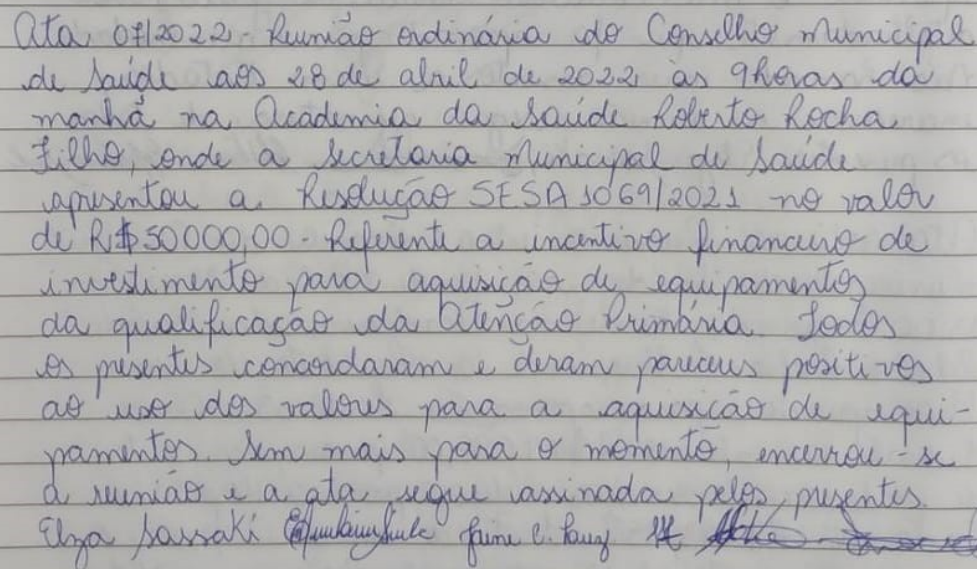 Ata 07/2022 - Reunião ordinária do Conselho Municipal
de Saúde aos 28 de abril de 2022 às 9horas da
manhã na Academia da Saúde Roberto Rocha
Filho, onde a Secretaria Municipal de Saúde
apresentou a Resolução SESA 1069/2021 no valor
de R$ 50000,00 - Referente a incentivo financeiro de
investimento para aquisição de equipamentos
da qualificação da Atenção Primária. Todos
os presentes concordaram e deram pareceres positivos
ao uso dos valores para a aquisição de equi-
pamentos. Sem mais para o momento, encerrou-se
a reunião e a ata segue assinada pelos presentes.
Elza Sassaki